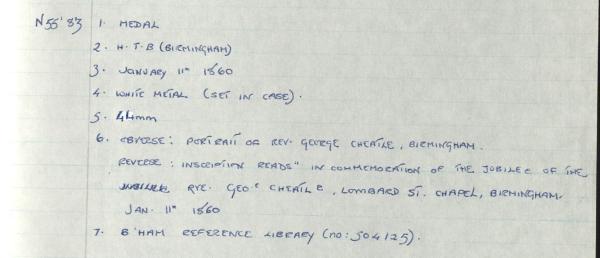 N55'83 1. MEDAL
2. H.T.B (BIRMINGHAM)
3. JANUARY 11th 1860
4. WHITE METAL (SET IN CASE).
5. 44mm
6. OBVERSE: PORTRAIT OF REV. GEORGE CHEATLE, BIRMINGHAM.
REVERSE: INSCRIPTION READS" IN COMMEMORATION OF THE JUBILEE OF THE
REV. GEO.E CHEATLE, LOMBARD ST. CHAPEL, BIRMINGHAM.
JAN. 11th 1860
7. B'HAM REFERENCE LIBRARY (no: 504125).